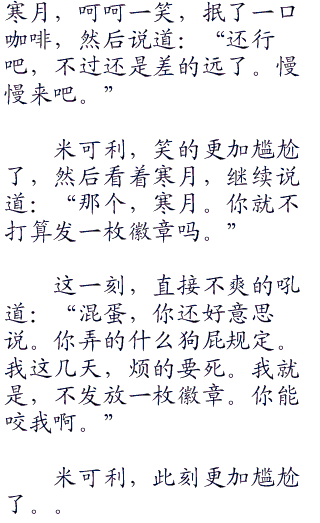 寒月，呵呵一笑，抿了一口
咖啡，然后说道：“还行
吧，不过还是差的远了。慢
慢来吧。”
米可利，笑的更加尴尬
了，然后看着寒月，继续说
道：“那个，寒月。你就不
打算发一枚徽章吗。”
这一刻，直接不爽的吼
道：“混蛋，你还好意思
说。你弄的什么狗屁规定。
我这几天，烦的要死。我就
是，不发放一枚徽章。你能
咬我啊。”
米可利，此刻更加尴尬
了。。